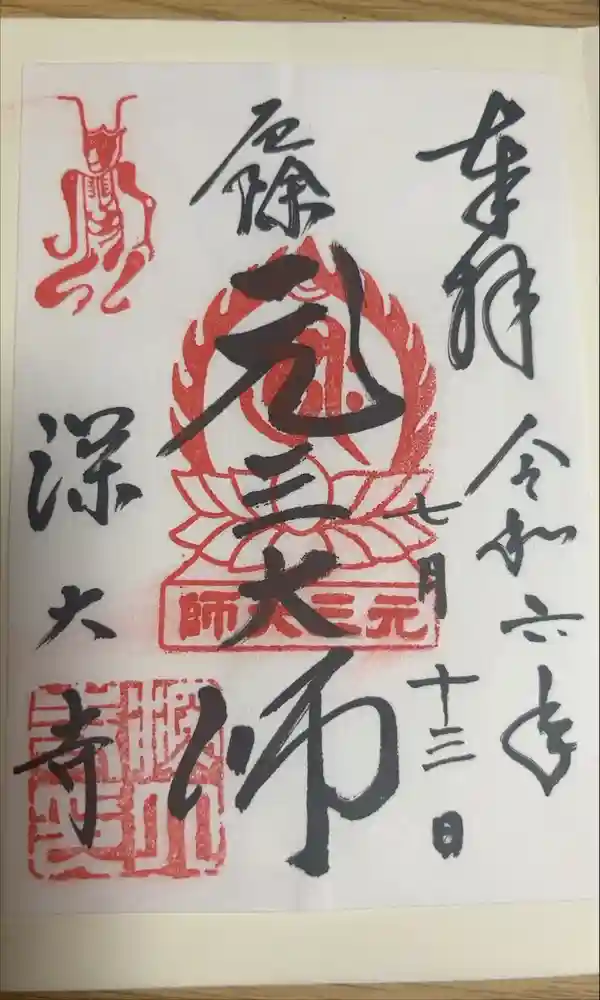 奉拝
令和六年
七月
十三日
厄除
元三大師
元三大師
深大寺